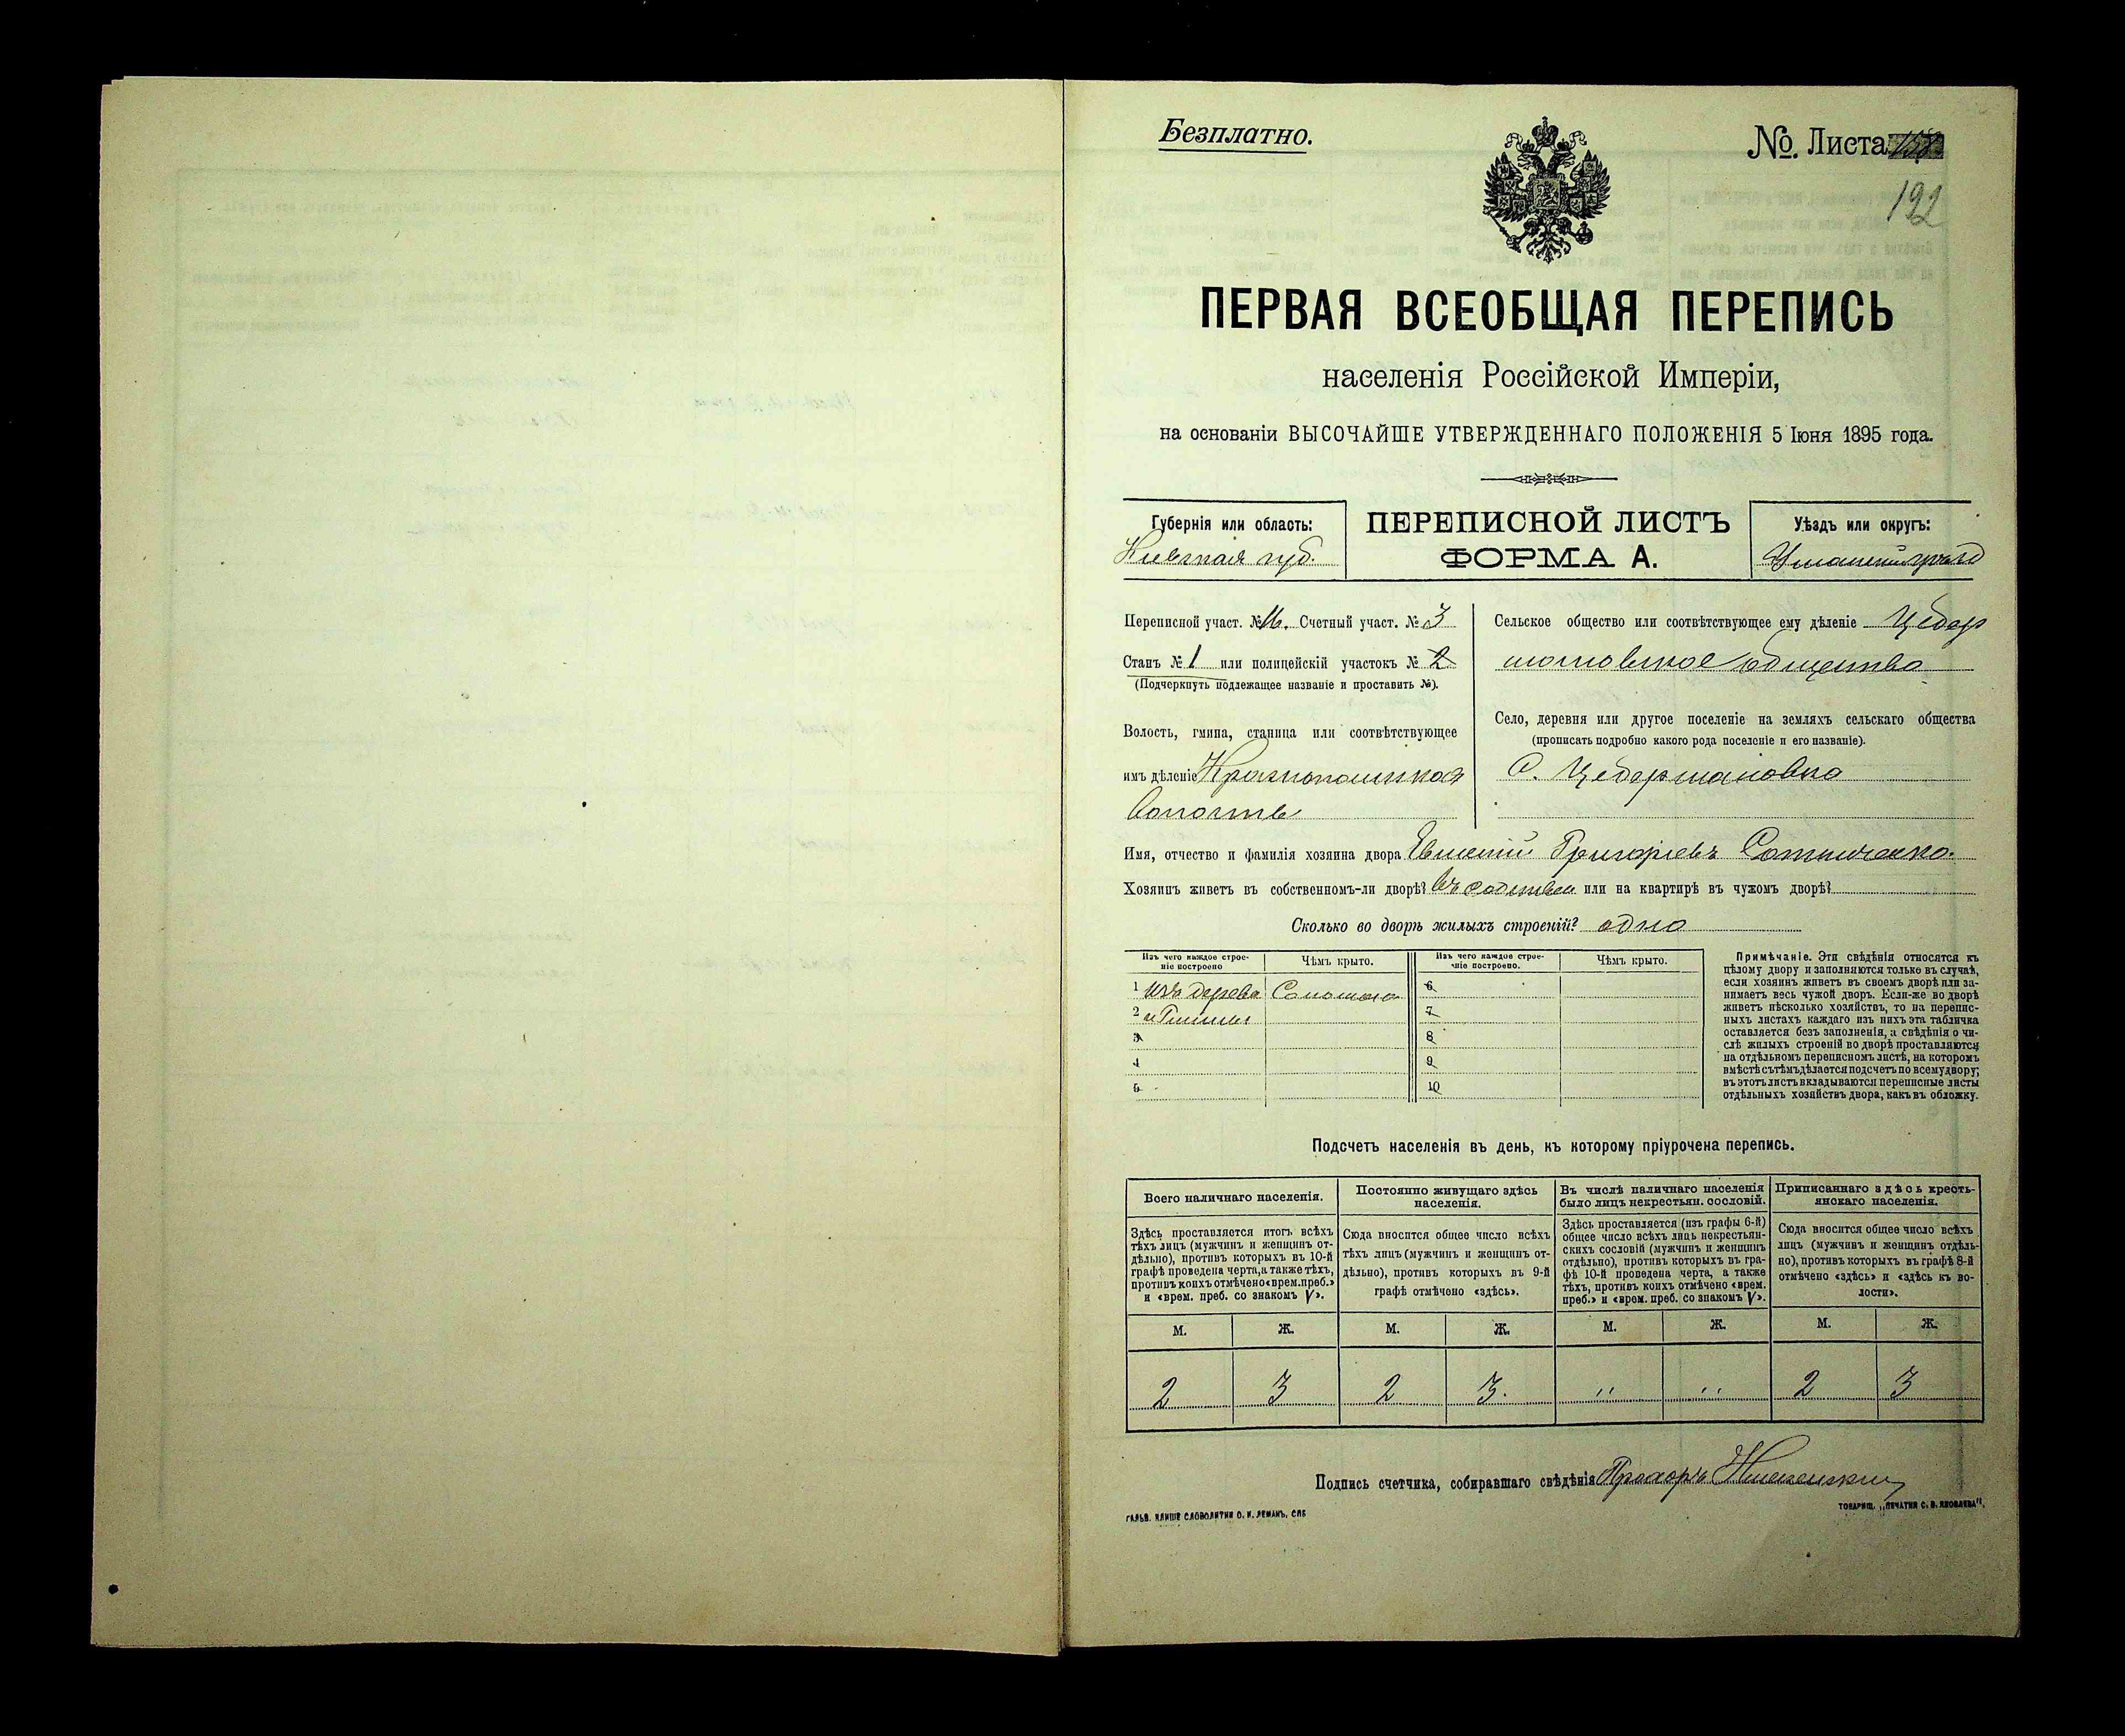 Безплатно.
№. Листа
192
ПЕРВАЯ ВСЕОБЩАЯ ПЕРЕПИСЬ
населенія Россійской Имперіи,
на основаніи ВЫСОЧАЙШЕ УТВЕРЖДЕННАГО ПОЛОЖЕНІЯ 5 Іюня 1895 года.
Губернія или область:
Кіевская губ.
ПЕРЕПИСНОЙ ЛИСТЪ
ФОРМА А.
Уѣздъ или округъ:
Уманскій уѣздъ
Переписной участ. № 16. Счетный участ. № 3
Станъ № 1 или полицейскій участокъ № 2
(Подчеркнуть подлежащее названіе и проставить №).
Волость, гмина, станица или соотвѣтствующее
имъ дѣленіе Краснопольская
волость
Сельское общество или соотвѣтствующее ему дѣленіе Цебер
мановское общество
Село, деревня или другое поселеніе на земляхъ сельскаго общества
(прописать подробно какого рода поселеніе и его названіе).
С. Цебермановка
Имя, отчество и фамилія хозяина двора Евменій Григорьевъ Сотниченко.
Хозяинъ живетъ въ собственномъ-ли дворѣ? въ собствен или на квартирѣ въ чужомъ дворѣ?
Сколько во дворѣ жилыхъ строеній? одно
Изъ чего каждое строе-
ніе построено
Чѣмъ крыто.
Изъ чего каждое строе-
ніе построено.
Чѣмъ крыто.
1 изъ дерева Соломою
2 и Глины
3
4
5
6
7
8
9
10
Примѣчаніе. Эти свѣдѣнія относятся къ
цѣлому двору и заполняются только въ случаѣ,
если хозяинъ живетъ въ своемъ дворѣ или за-
нимаетъ весь чужой дворъ. Если-же во дворѣ
живетъ нѣсколько хозяйствъ, то на перепис-
ныхъ листахъ каждаго изъ нихъ эта табличка
оставляется безъ заполненія, а свѣдѣнія о чи-
слѣ жилыхъ строеній во дворѣ проставляются
на отдѣльномъ переписномъ листѣ, на которомъ
вмѣстѣ съ тѣмъ дѣлается подсчетъ по всему двору;
въ этотъ листъ вкладываются переписные листы
отдѣльныхъ хозяйствъ двора, какъ въ обложку.
Подсчетъ населенія въ день, къ которому пріурочена перепись.
Всего наличнаго населенія.
Здѣсь проставляется итогъ всѣхъ
тѣхъ лицъ (мужчинъ и женщинъ от-
дѣльно), противъ которыхъ въ 10-й
графѣ проведена черта, а также тѣхъ,
противъ коихъ отмѣчено «врем. преб.»
и «врем. преб. со знакомъ V».
Постоянно живущаго здѣсь
населенія.
Сюда вносится общее число всѣхъ
тѣхъ лицъ (мужчинъ и женщинъ от-
дѣльно), противъ которыхъ въ 9-й
графѣ отмѣчено «здѣсь».
Въ числѣ наличнаго населенія
было лицъ некрестьян. сословій.
Здѣсь проставляется (изъ графы 6-й)
общее число всѣхъ лицъ некрестьян-
скихъ сословій (мужчинъ и женщинъ
отдѣльно), противъ которыхъ въ гра-
фѣ 10-й проведена черта, а также
тѣхъ, противъ коихъ отмѣчено «врем.
преб.» и «врем. преб. со знакомъ V».
Приписаннаго здѣсь кресть-
янскаго населенія.
Сюда вносится общее число всѣхъ
лицъ (мужчинъ и женщинъ отдѣль-
но), противъ которыхъ въ графѣ 8-й
отмѣчено «здѣсь» и «здѣсь къ во-
лости».
М. Ж. М. Ж. М. Ж. М. Ж.
2 3 2 3. " " 2 3
Подпись счетчика, собиравшаго свѣдѣнія Прохоръ
ГАЛЬВ. КЛИШЕ СЛОВОЛИТНИ О. И. ЛЕМАНЪ, СПБ
ТОВАРИЩ. „ПЕЧАТНЯ С. П. ЯКОВЛЕВА".